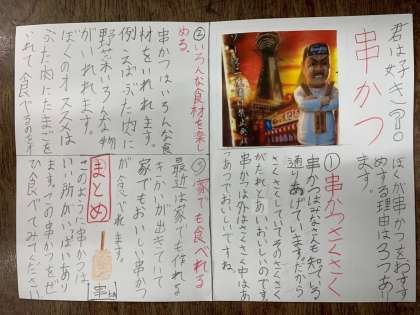 君は好き?。
串かつ
ぼくが串かつをおすす
めする理由は3つあり
ます。
①串かつさくさく
串かつはみなさん知っている
通りあげています。だから
さくさくとしていてそのさくさく
がたれとあいおいしいのです。
串かつは外はさくさく中はあ
つあつでおいしいですね。
②いろんな食材を楽し
める。
串かつはいろんな食
材をいれれます。
例えばぶた肉に
野菜いろんな物
がいれれます。
ぼくのオススメは
ぶた肉にたまごを
いれて食べるのです
③家でも食べれる
最近は家でも作れる
きかいが出きていて
家でもおいしい串かつ
が食べれます。
まとめ
このように串かつは
いい所がいっぱいあり
ます。この串かつをぜ
ひ食べてみてください
串